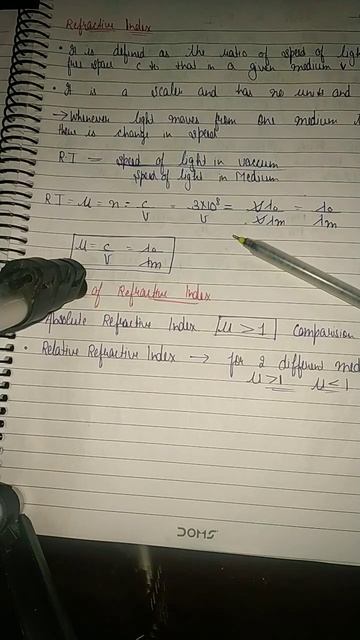 Refractive Index
• It is defined as the ratio of speed of light
free space c to that in a given medium v
• It is a scaler and has no units and
→ Whenever light moves from one medium
there is change in speed
R.I = speed of light in vaccum
speed of light in Medium
R.I = μ = n = c/v = 3×10⁸/v = νλ₀/νλm = λ₀/λm
μ = c/v = λ₀/λm
of Refractive Index
Absolute Refractive Index μ > 1 comparision
• Relative Refractive Index → for 2 different med
μ > 1 μ < 1
DOMS